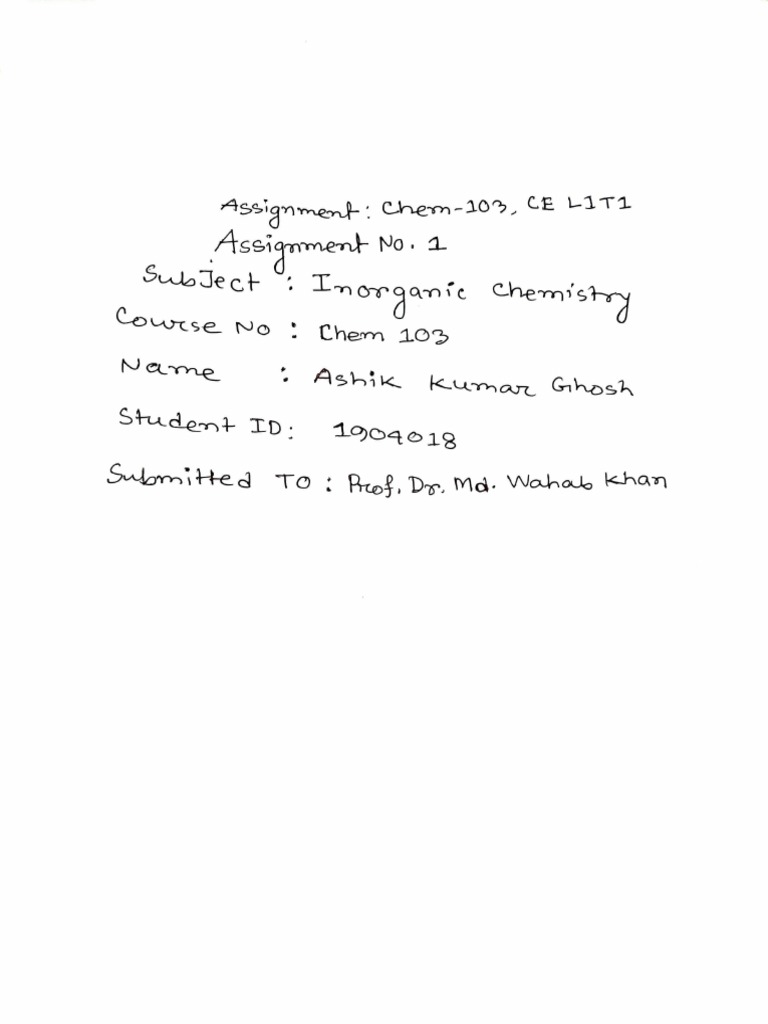 Assignment: Chem-103, CE L1T1
Assignment No. 1
Subject : Inorganic Chemistry
Course No : Chem 103
Name : Ashik Kumar Ghosh
Student ID: 1904018
Submitted To : Prof. Dr. Md. Wahab Khan